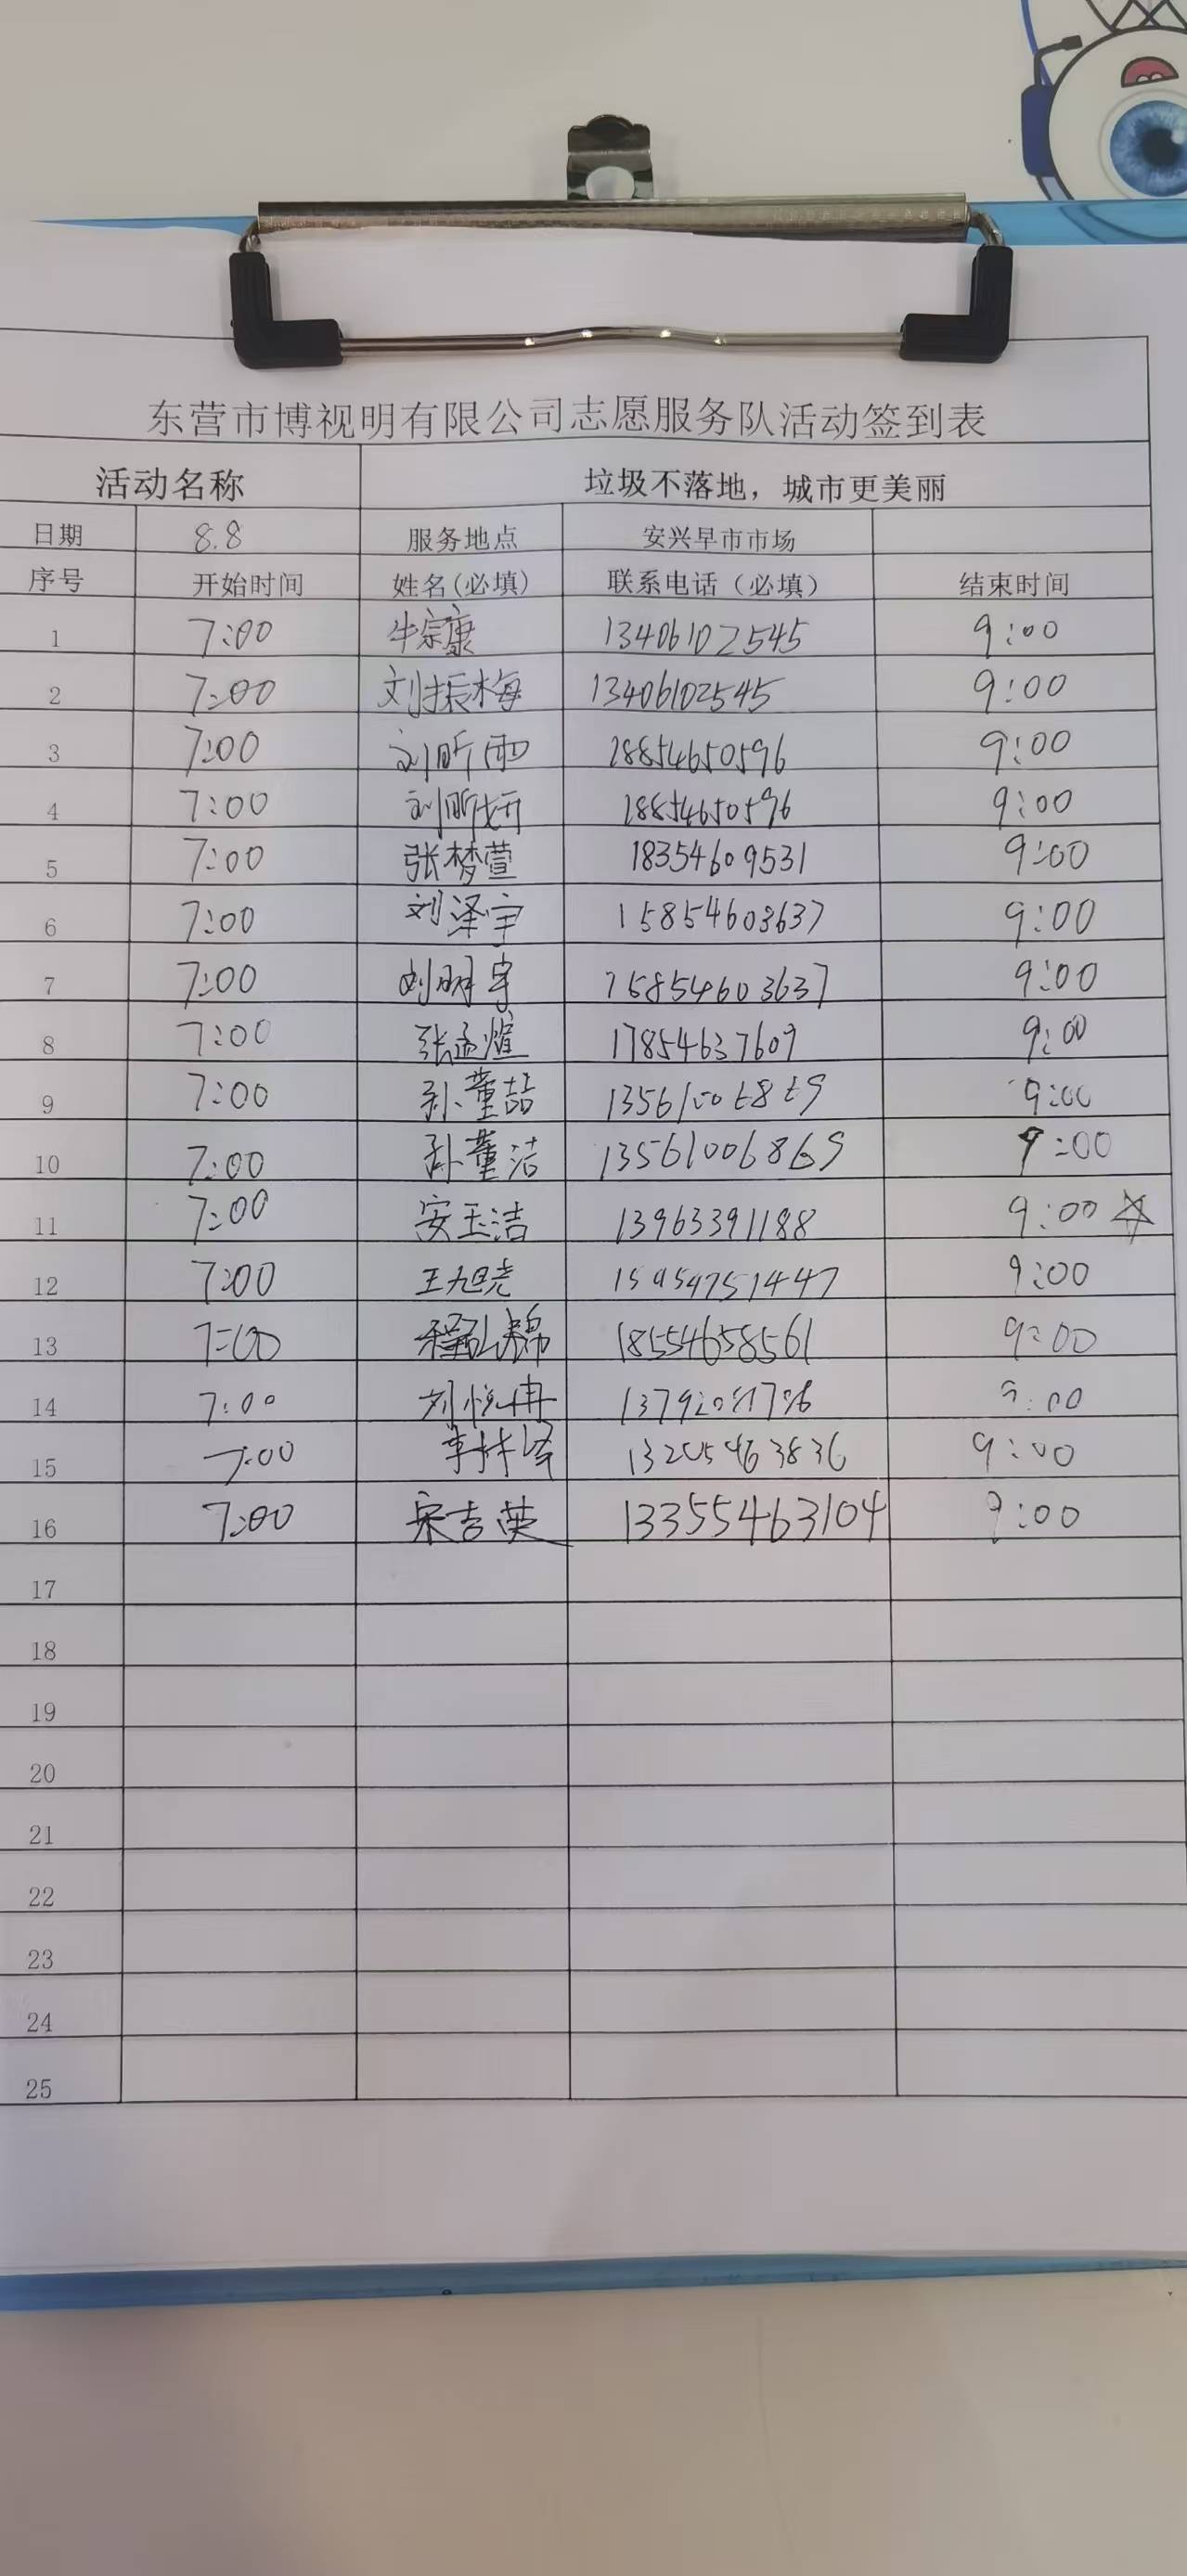 东营市博视明有限公司志愿服务队活动签到表
活动名称 垃圾不落地，城市更美丽
日期 8.8 服务地点 安兴早市市场
序号 开始时间 姓名(必填) 联系电话（必填） 结束时间
1 7:00 牛宗康 13406102545 9:00
2 7:00 刘振梅 13406102545 9:00
3 7:00 刘昕雨 18854650596 9:00
4 7:00 刘昕妍 18854650596 9:00
5 7:00 张梦萱 18354609531 9:00
6 7:00 刘泽宇 15854603637 9:00
7 7:00 刘明宇 15854603637 9:00
8 7:00 张孟煊 17854637609 9:00
9 7:00 孙董喆 13561006869 9:00
10 7:00 孙董洁 13561006869 9:00
11 7:00 安玉洁 13963391188 9:00 ☆
12 7:00 王旭尧 15954751447 9:00
13 7:00 18554658561 9:00
14 7:00 刘悦冉 9:00
15 7:00 13205463836 9:00
16 7:00 宋吉英 13355463104 9:00
17
18
19
20
21
22
23
24
25